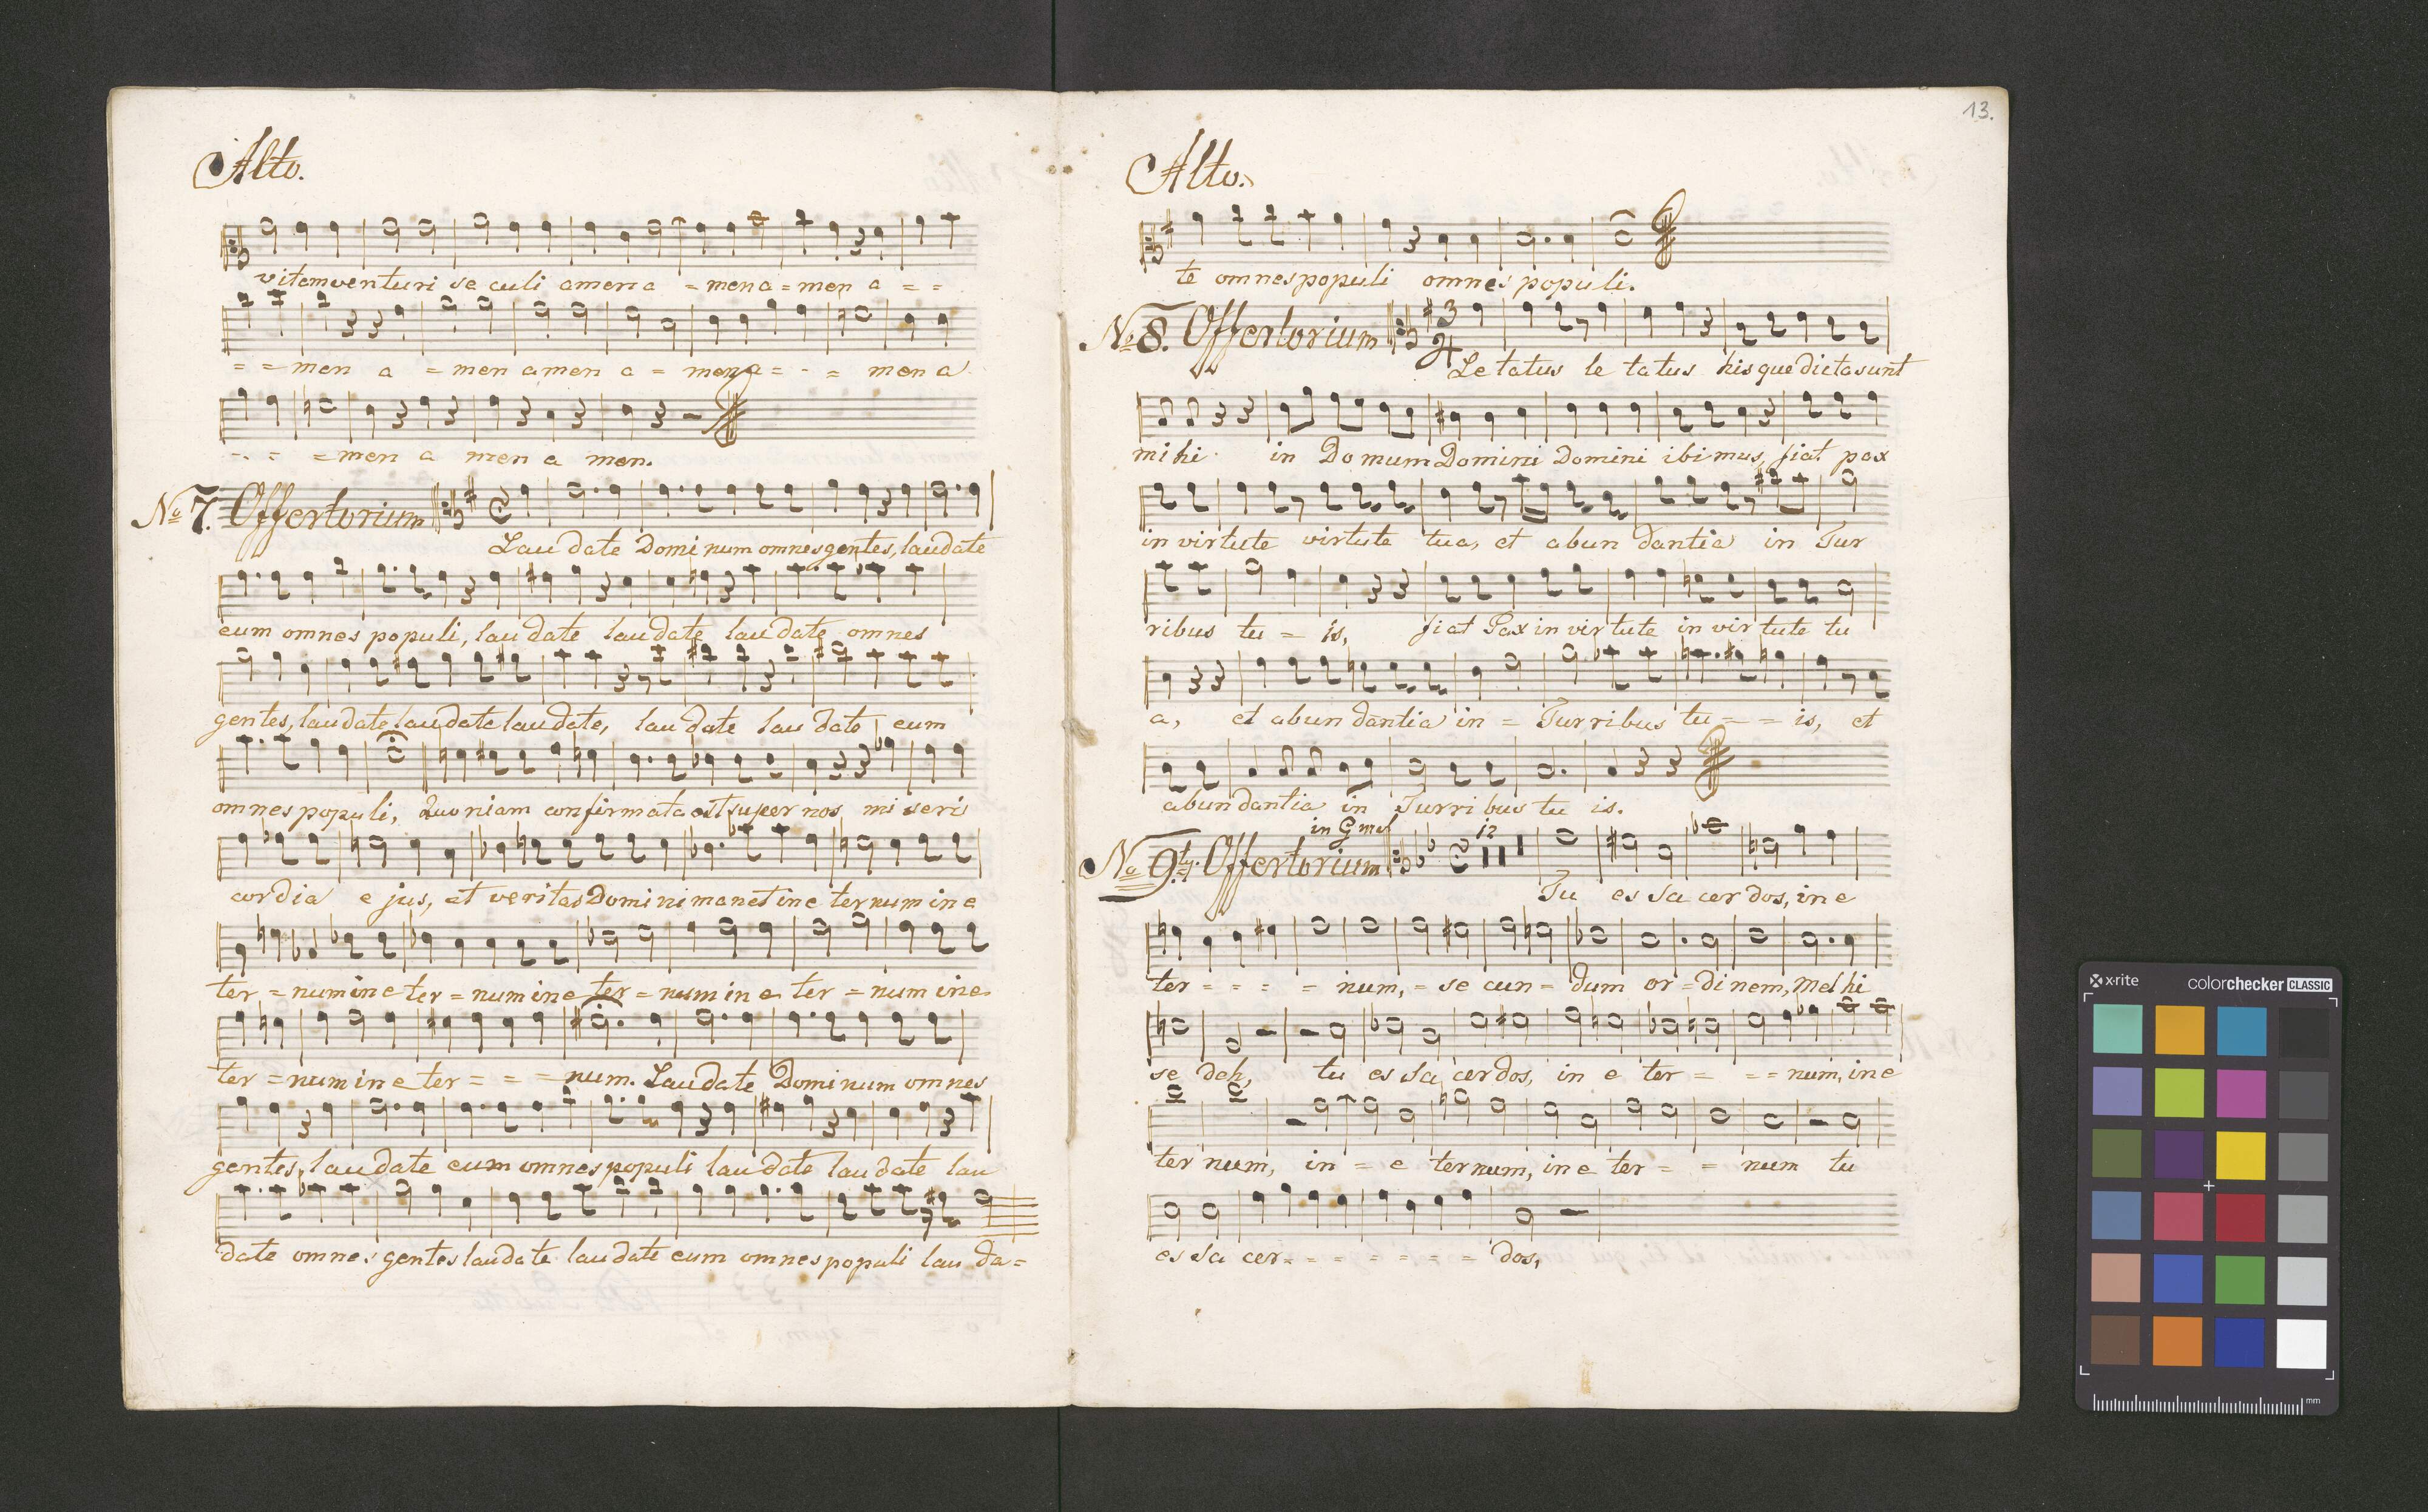 Alto.
vitam venturi se culi amen a = men a = men a = =
= = men a = men amen a = men a = - = men a
-. - = men a men a men.
No 7. Offertorium
Lau date Domi num omnes gentes, laudate
eum omnes populi, lau date laudate lau date omnes
gentes, laudate laudate laudate, lau date lau date eum
omnes populi, Quoniam confirmata est super nos mi seris
cordia e jus, et veritas Domini manet in e ter num in e
ter = num in e ter = num in e ter = num in e ter = num in e
ter = num in e ter = = = num. Laudate Domi num omnes
gentes, laudate eum omnes populi laudate laudate lau
date omnes gentes laudate laudate eum omnes populi lau da=
13.
Alto.
te omnes populi omnes populi.
No 8. Offertorium 3 4
Le tatus le tatus his que dicta sunt
mi hi in Do mum Domini Domini ibimus, fiat pax
in virtute virtute tua, et abun dantia in Tur
ribus tu = is, fiat Pax in vir tute in vir tute tu
a, et abun dantia in = Turribus tu = = is, et
abun dantia in Turri bus tu is.
in G mol 12
No 9. Offertorium
Tu es Sa cer dos, in e
ter = = = = num, = se cun = dum or = di nem, Mel hi
se deh, tu es Sa cerdos, in e ter = = = num, in e
ter num, in = e ternum, in e ter = = num tu
es Sa cer = = = = = = = dos,
x-rite colorchecker CLASSIC
mm